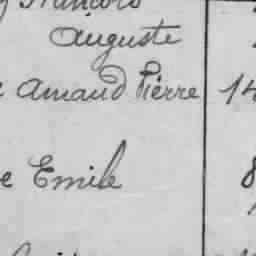 François
Auguste
Amand Pierre 14
e Emile 8